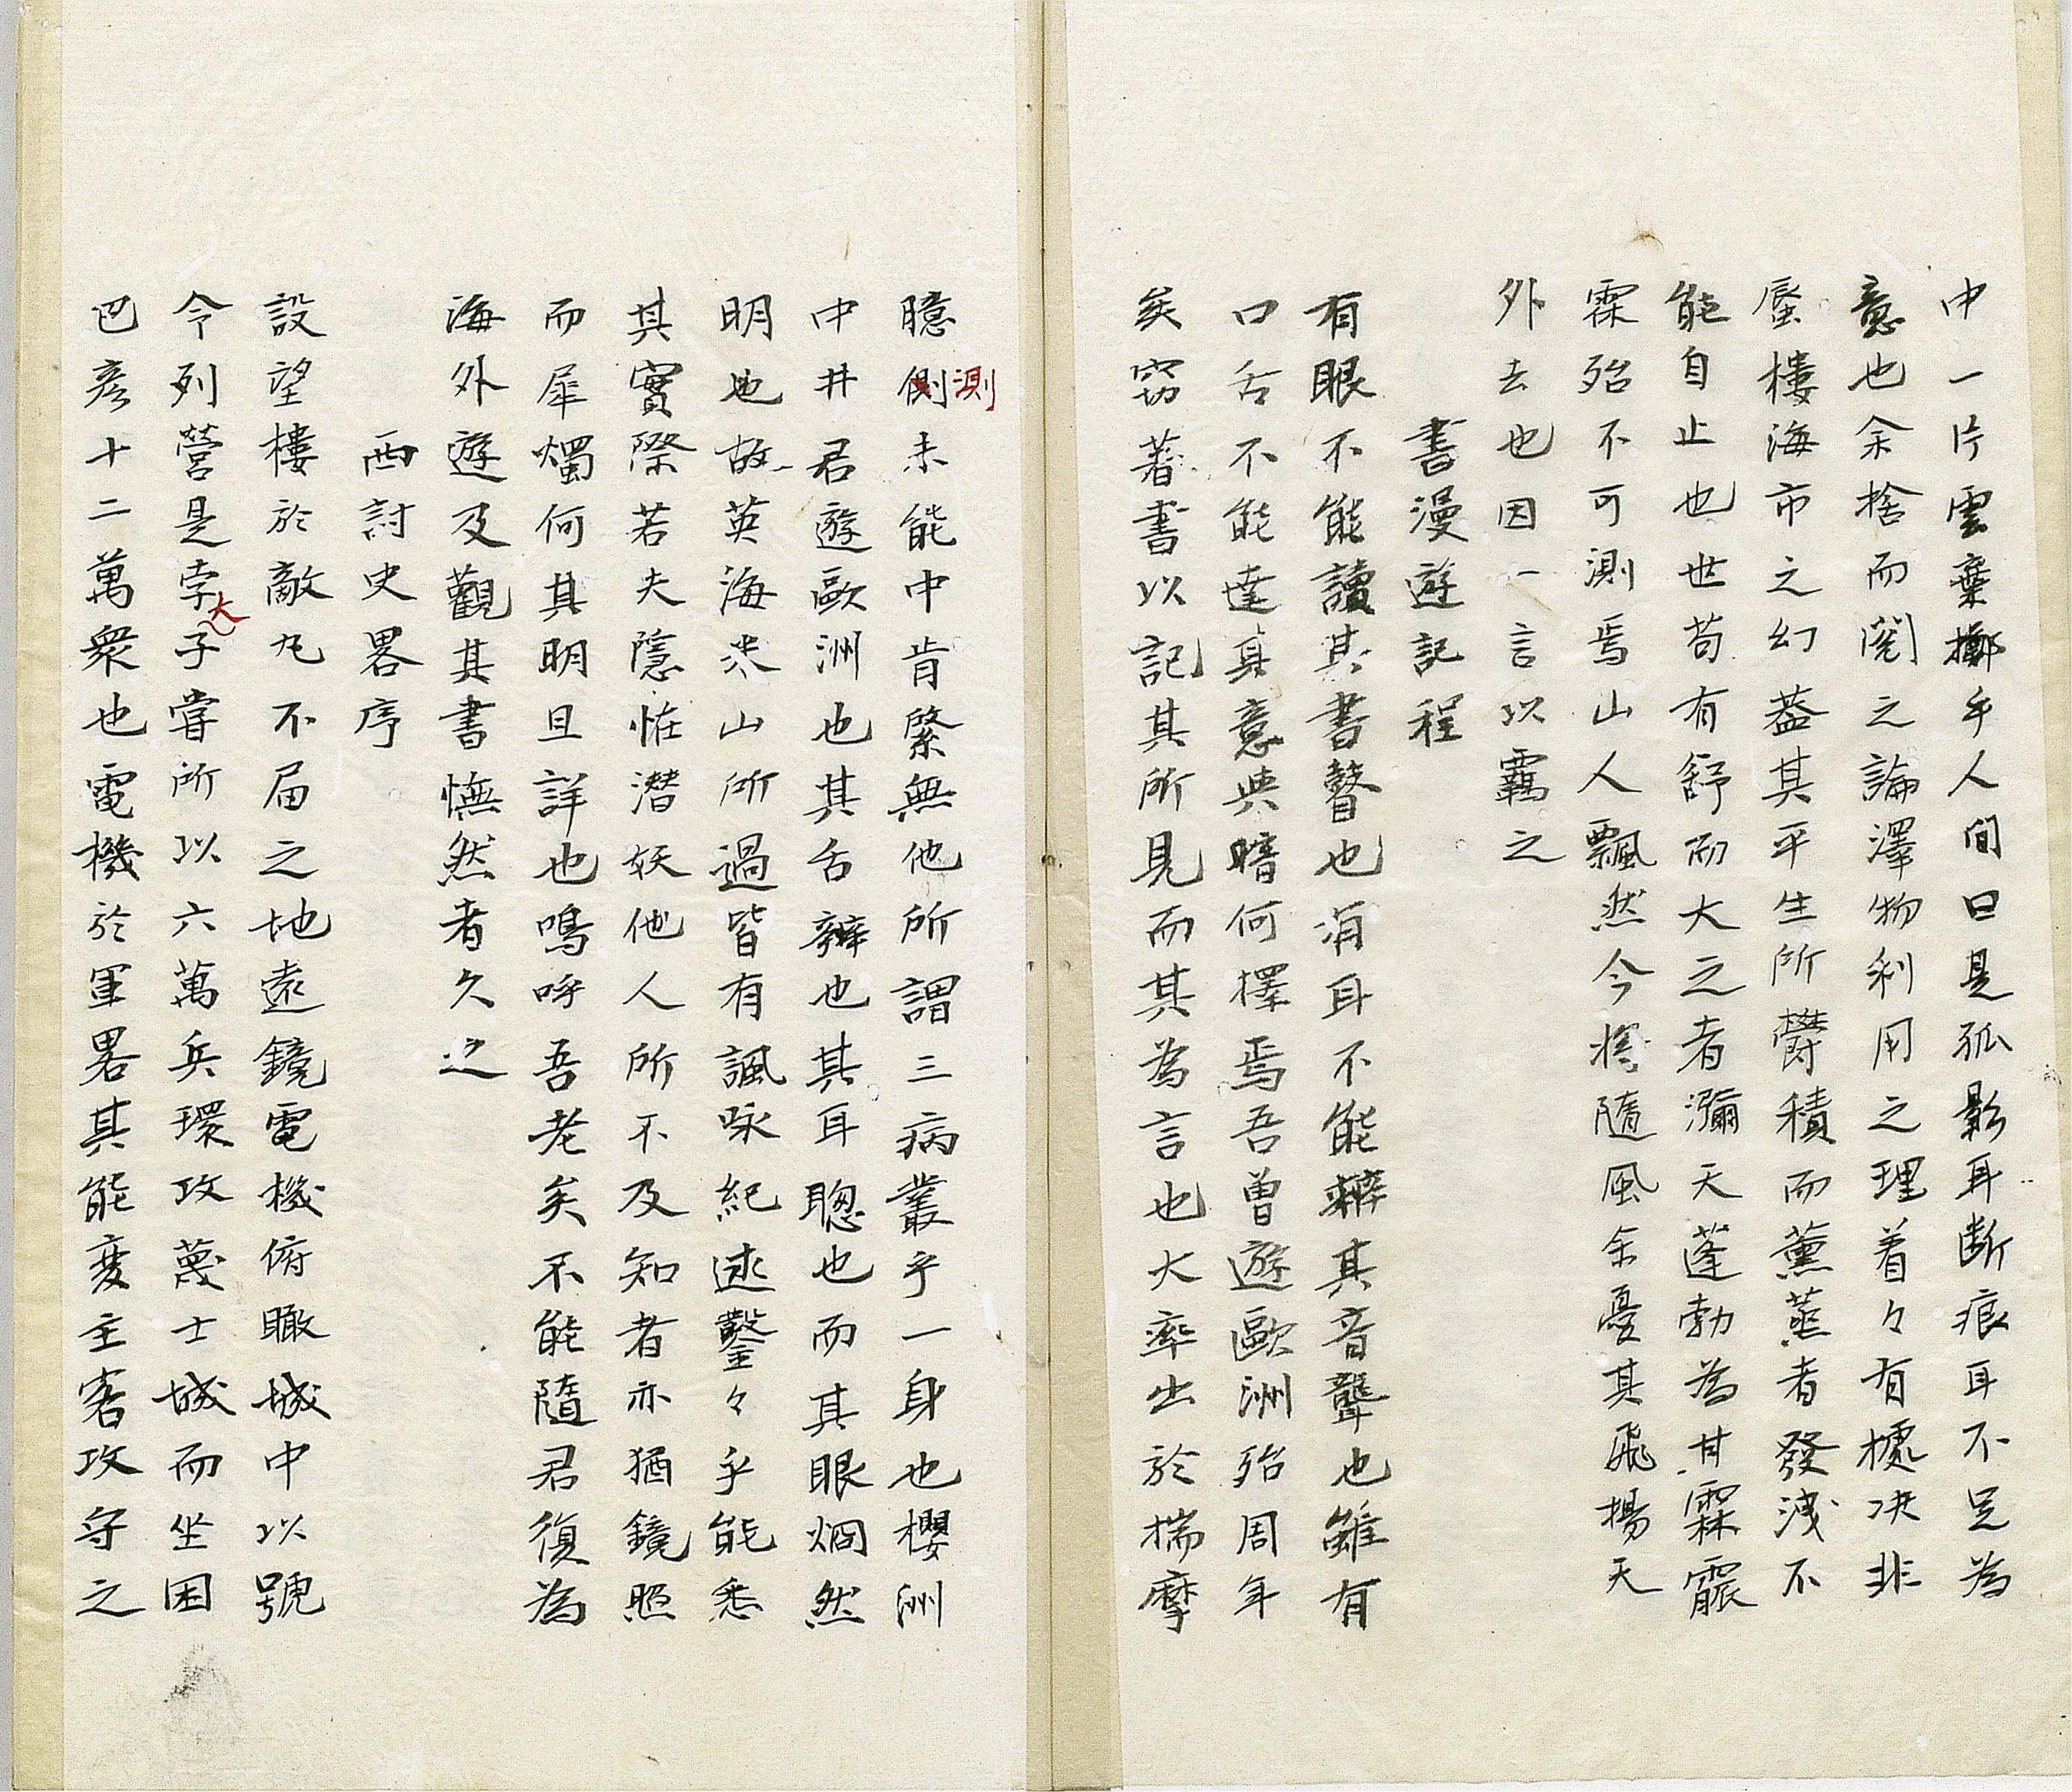 中一片雲棄擲乎人間曰是孤影耳断痕耳不足為
意也余捨而閲之論澤物利用之理着々有據决非
蜃樓海市之幻葢其平生所欝積而薰蒸者發洩不
能自止也世苟有舒而大之者瀰天蓬勃為甘霖霢
霂殆不可測焉山人飄然今将隨風余憂其飛揚天
外去也因一言以羈之
書漫遊記程
有眼不能讀其書瞽也有耳不能辨其音聾也雖有
口舌不能達其意與暗何擇焉吾曽遊歐洲殆周年
矣窃著書以記其所見而其為言也大率出於揣摩
臆側未能中肯綮無他所謂三病叢乎一身也櫻洲
測
中井君遊歐洲也其舌辨也其耳聰也而其眼烱然
明也故英海米山所過皆有諷咏紀述鑿々乎能悉
其實際若夫隱怪潜妖他人所不及知者亦猶鏡照
而犀燭何其明且詳也嗚呼吾老矣不能隨君復為
海外遊及觀其書憮然者久之
西討史畧序
設望樓於敵丸不届之地遠鏡電機俯瞰城中以號
令列營是孛子嘗所以六萬兵環攻蔑士城而坐困
大
巴彦十二萬衆也電機於軍畧其能変主客攻守之